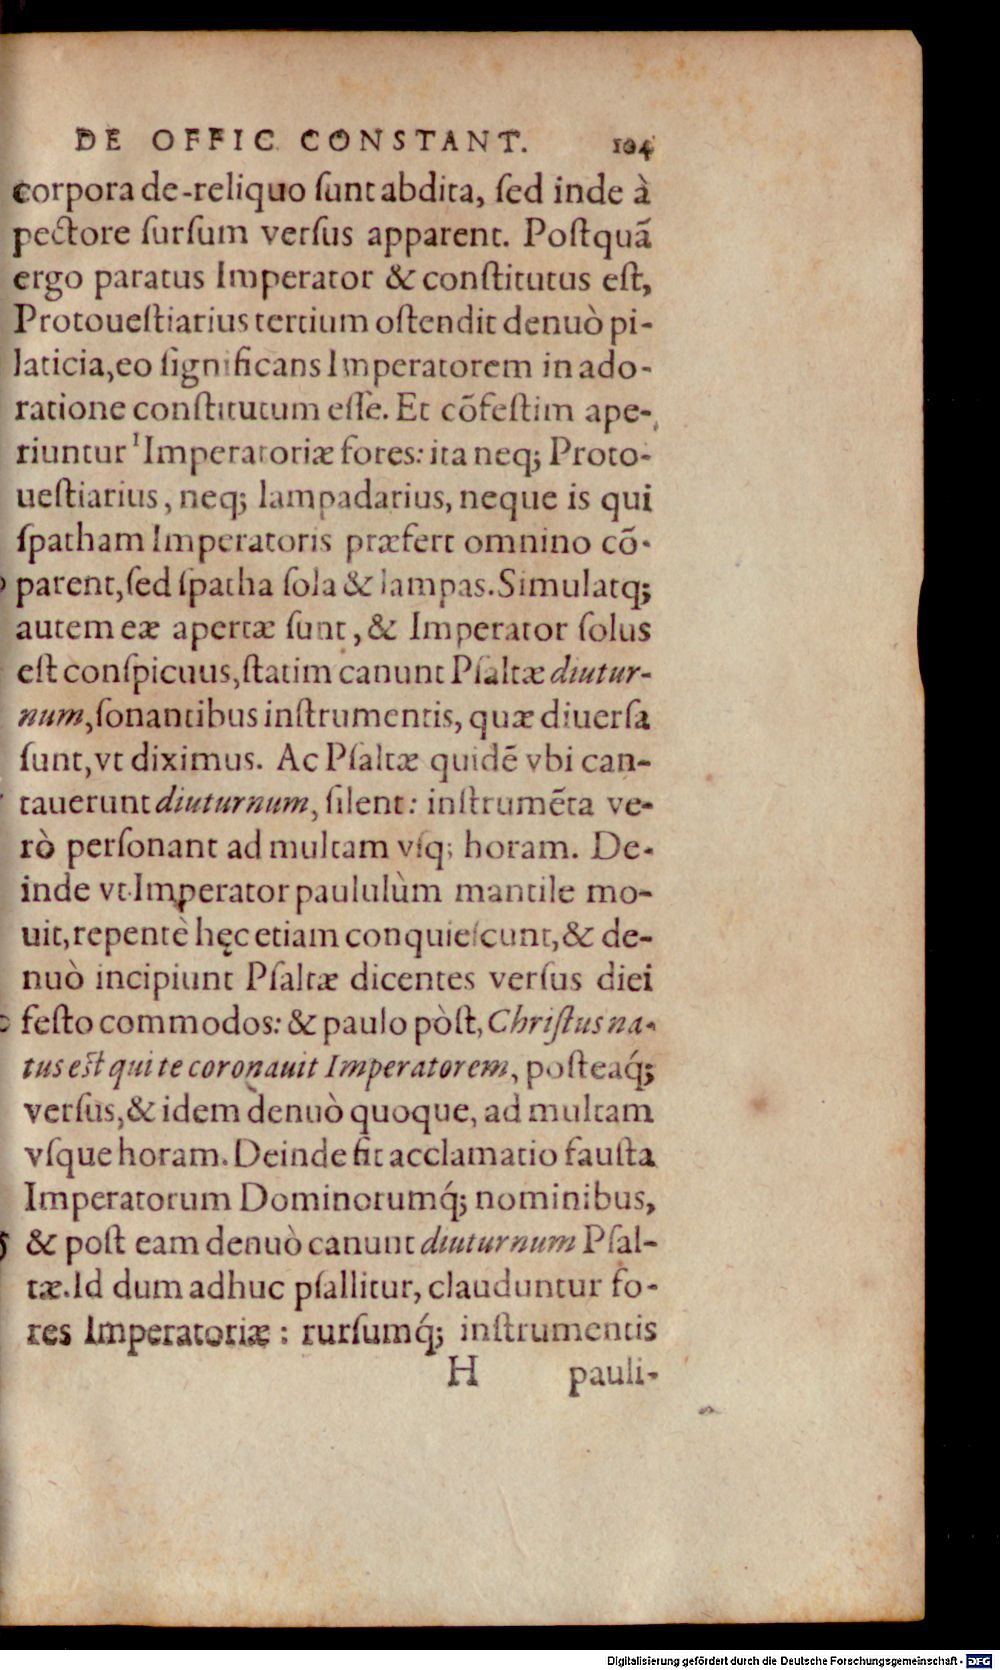 DE OFFIC CONSTANT. 104
corpora de-reliquo ſunt abdita, ſed inde à
pectore ſurſum verſus apparent. Poſtquã
ergo paratus Imperator & conſtitutus eſt,
Protoueſtiarius tertium oſtendit denuò pi-
laticia, eo ſignificans Imperatorem in ado-
ratione conſtitutum eſſe. Et cõfeſtim ape-
riuntur Imperatoriæ fores: ita neq; Proto-
ueſtiarius, neq; lampadarius, neque is qui
ſpatham Imperatoris præfert omnino cõ-
parent, ſed ſpatha ſola & lampas. Simulatq;
autem eæ apertæ ſunt, & Imperator ſolus
eſt conſpicuus, ſtatim canunt Pſaltæ diutur-
num, ſonantibus inſtrumentis, quæ diuerſa
ſunt, vt diximus. Ac Pſaltæ quidẽ vbi can-
tauerunt diuturnum, ſilent: inſtrumẽta ve-
rò perſonant ad multam vſq; horam. De-
inde vt Imperator paululùm mantile mo-
uit, repentè hęc etiam conquieſcunt, & de-
nuò incipiunt Pſaltæ dicentes verſus diei
feſto commodos: & paulo pòſt, Chriſtus na-
tus eſt qui te coronauit Imperatorem, poſteaq́;
verſus, & idem denuò quoque, ad multam
vſque horam. Deinde fit acclamatio fauſta
Imperatorum Dominorumq́; nominibus,
& poſt eam denuò canunt diuturnum Pſal-
tæ. Id dum adhuc pſallitur, clauduntur fo-
res Imperatoriæ: rurſumq́; inſtrumentis
H pauli-
Digitalisierung gefördert durch die Deutsche Forschungsgemeinschaft - DFG